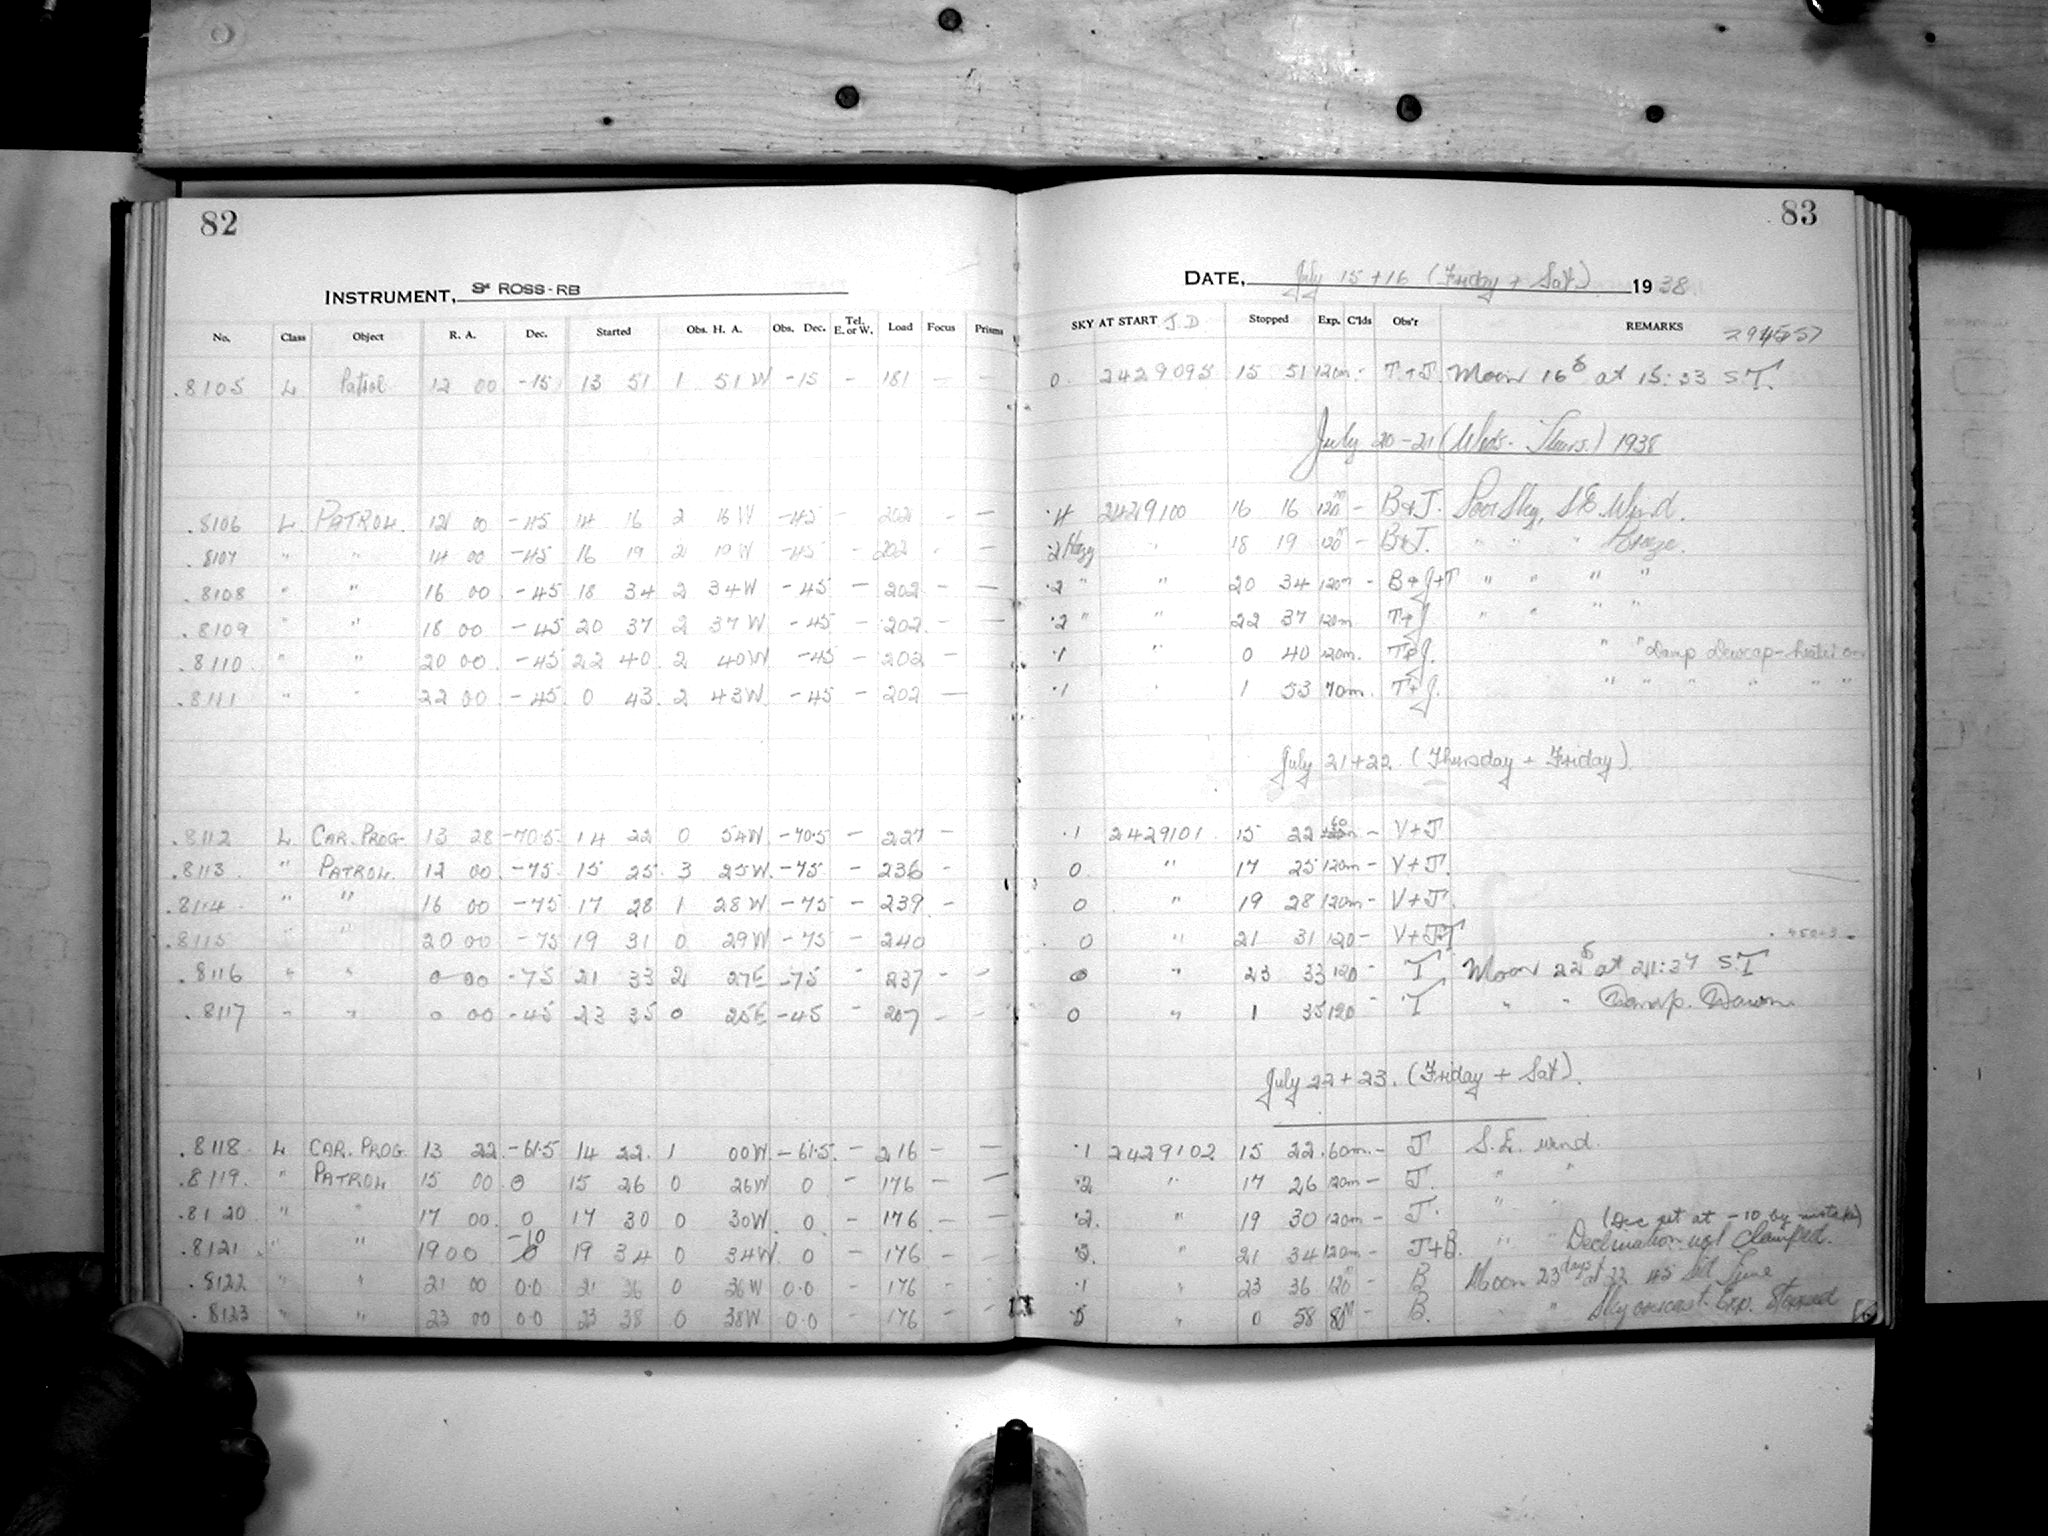 82
INSTRUMENT, ROSS-RB
No. Class Object R. A. Dec. Started Obs. H. A. Obs. Dec. Tel. E. or W. Load Focus Prisms
.8105 L Patrol 12 00 -15 13 51 1 51 W -15 - 181 - -
.8106 L PATROL. 12 00 -45 14 16 2 16 W -45 - 202 - -
.8107 " " 14 00 -45 16 19 2 19 W -45 - 202 - -
.8108 " " 16 00 -45 18 34 2 34 W -45 - 202 - -
.8109 " " 18 00 -45 20 37 2 37 W -45 - 202 - -
.8110 " " 20 00 -45 22 40 2 40 W -45 - 202 - -
.8111 " " 22 00 -45 0 43 2 43 W -45 - 202 -
.8112 L CAR. PROG. 13 28 -70.5 14 22 0 54 W -70.5 - 227 -
.8113 " PATROL. 12 00 -75 15 25 3 25 W -75 - 236 -
.8114 " " 16 00 -75 17 28 1 28 W -75 - 239 -
.8115 " " 20 00 -75 19 31 0 29 W -75 - 240
.8116 " " 0 00 -75 21 33 2 27 E -75 - 237 - -
.8117 " " 0 00 -45 23 35 0 25 E -45 - 207 - -
.8118 L CAR. PROG 13 22 -61.5 14 22 1 00 W -61.5 - 216 - -
.8119 " PATROL 15 00 0 15 26 0 26 W 0 - 176 - -
.8120 " " 17 00 0 17 30 0 30 W 0 - 176 - -
.8121 " " 19 00 -10 0 19 34 0 34 W 0 - 176 - -
.8122 " " 21 00 0.0 21 36 0 36 W 0.0 - 176 - -
.8123 " " 23 00 0.0 23 38 0 38 W 0.0 - 176 - -
83
DATE, July 15+16 (Friday + Sat) 1938
SKY AT START J.D. Stopped Exp. C'lds Obs'r REMARKS
0 2429095 15 51 120m - T+J Moon 16d at 15:33 S.T.
July 20-21 (Weds- Thurs.) 1938
.4 2429100 16 16 120m - B&J. Poor Sky, SE. Wind.
.2 Hazy " 18 19 120m - B&J. " " " Haze.
.2 " " 20 34 120m - B+J+T " " " "
.2 " " 22 37 120m T+J " " " "
.1 " 0 40 120m. T+J. " " Damp Dewcap-heater on
.1 " 1 53 70m. T+J. " " " " " "
July 21+22. (Thursday + Friday).
.1 2429101. 15 22 60 - V+J
0 " 17 25 120m - V+J.
0 " 19 28 120m - V+J.
0 " 21 31 120 - V+J+T
0 " 23 33 120 - T Moon 22d at 21:37 S.T
0 " 1 35 120 - T " " Damp. Dawn
July 22+23. (Friday + Sat).
.1 2429102 15 22 60m. - J S.E. wind.
.2 " 17 26 120m - J. " "
.2. " 19 30 120m - J. " "
(Dec set at -10 by mistake)
.3. " 21 34 120m - J+B. " " Declination not Clamped.
.1 " 23 36 120m - B Moon 23 days at 22 45 Sid Time
.5 " 0 58 80m - B. " " Sky overcast. Exp. Stopped